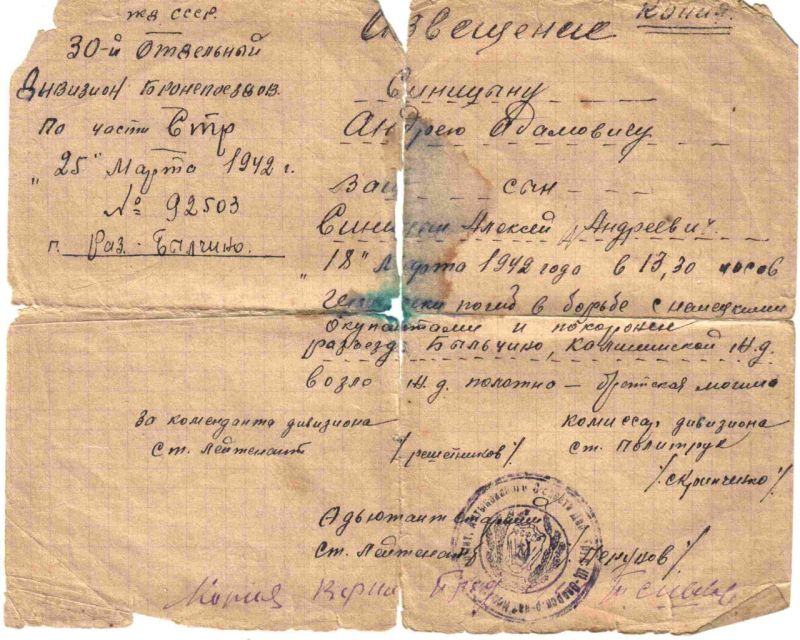 жд СССР.
30-й Отдельный
Дивизион Бронепоездов.
По части Стр
"25" Марта 1942 г.
№ 92503
г. Раз. Былчино.
Копия.
Извещение
Синицыну
Андрею Адамовичу
Ваш сын
Синицын Алексей Андреевич.
"18" Марта 1942 года в 13,30 часов
погиб в борьбе с немецкими
окупантами и похоронен
разъезд Быльчино, Калининской ж.д.
возле ж.д. полотно – братская могила
За коменданта дивизиона
Ст. Лейтенант /Решетников/
Комиссар дивизиона
ст. Политрук
/Скринченко/
Адьютант старший
Ст. Лейтенант
Копия Верна